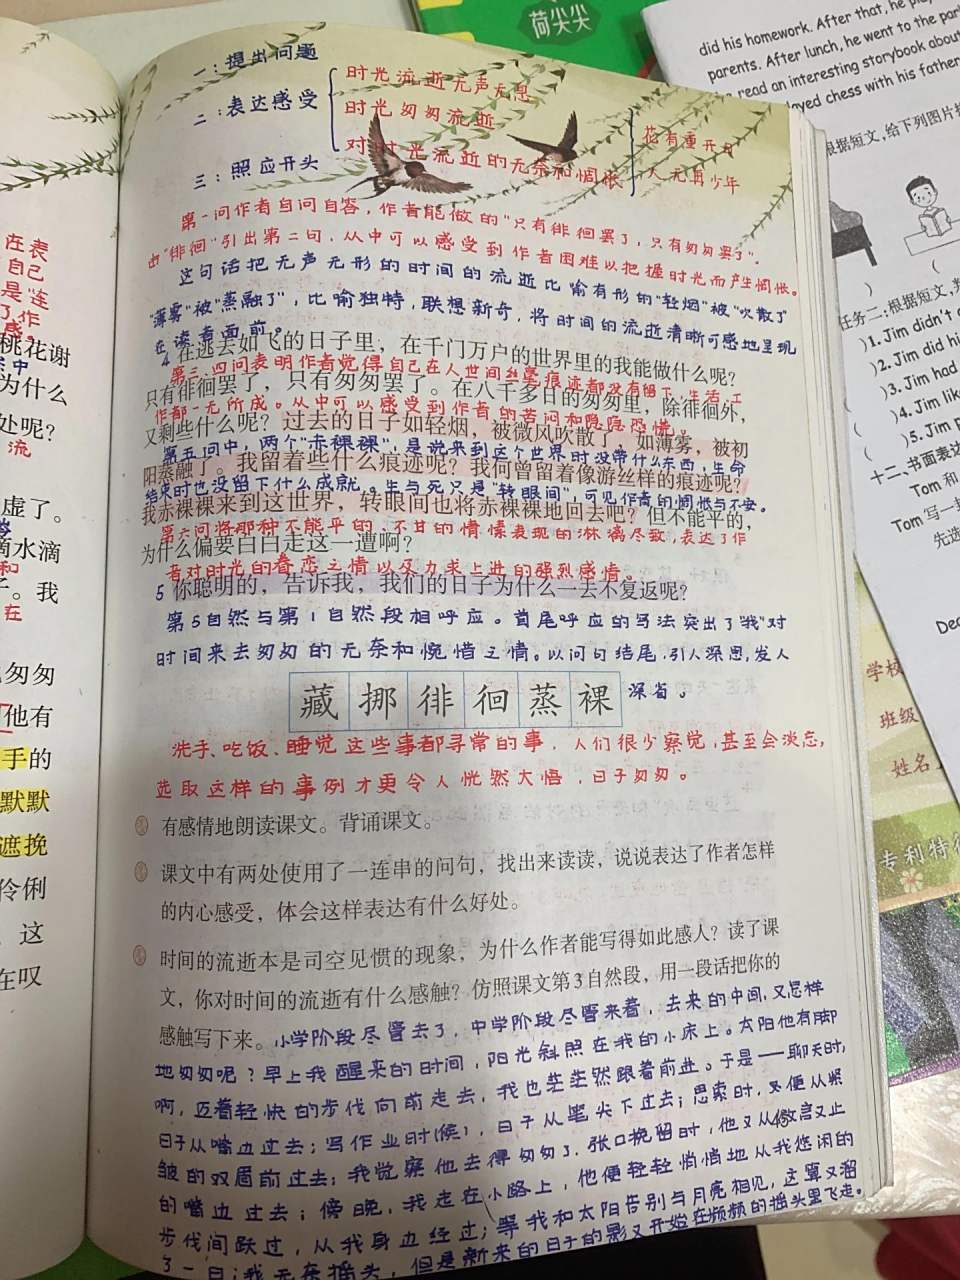 荷尖尖
did his homework. After that, he pl
parents. After lunch, he went to the par
read an interesting storybook about
layed chess with his father
根据短文,给下列图片
任务二:根据短文,
)1. Jim didn't
)2. Jim did hi
)3. Jim had
)4. Jim lik
)5. Jim p
十二、书面表达
Tom 和
Tom 写一
先选
Dea
学校
班级
姓名
专利特
在表
自己
是"连
了,作
感。
桃花谢
为什么
处呢?
流
虚了。
滴水滴
和
子。我
在
匆匆
他有
手的
默默
遮挽
伶俐
这
在叹
一:提出问题
二:表达感受
时光流逝无声无息
时光匆匆流逝
对时光流逝的无奈和惆怅
花有重开日
人无再少年
三:照应开头
第一问作者自问自答,作者能做的"只有徘徊罢了,只有匆匆罢了"。
由"徘徊"引出第二句,从中可以感受到作者因难以把握时光而产生惆怅。
这句话把无声无形的时间的流逝比喻有形的"轻烟"被"吹散了"
"薄雾"被"蒸融了",比喻独特,联想新奇,将时间的流逝清晰可感地呈现
在读者面前。
4 在逃去如飞的日子里,在千门万户的世界里的我能做什么呢?
第三、四问表明作者觉得自己在人世间丝毫痕迹都没有留下,生活、工
只有徘徊罢了,只有匆匆罢了。在八千多日的匆匆里,除徘徊外,
作都一无所成。从中可以感受到作者的苦闷和隐隐恐慌。
又剩些什么呢?过去的日子如轻烟,被微风吹散了,如薄雾,被初
第五问中,两个"赤裸裸",是说来到这个世界时没带什么东西,生命
阳蒸融了。我留着些什么痕迹呢?我何曾留着像游丝样的痕迹呢?
结束时也没留下什么成就。生与死只是"转眼间",可见作者的惆怅与不安。
我赤裸裸来到这世界,转眼间也将赤裸裸地回去吧?但不能平的,
第六问将那种不能平的、不甘的情愫表现的淋漓尽致,表达了作
为什么偏要白白走这一遭啊?
者对时光的眷恋之情以及力求上进的强烈感情。
5 你聪明的,告诉我,我们的日子为什么一去不复返呢?
第5自然与第1自然段相呼应。首尾呼应的写法突出了"我"对
时间来去匆匆的无奈和惋惜之情。以问句结尾,引人深思,发人
深省。
藏 挪 徘 徊 蒸 裸
洗手、吃饭、睡觉这些事都寻常的事,人们很少察觉,甚至会淡忘,
选取这样的事例才更令人恍然大悟,日子匆匆。
有感情地朗读课文。背诵课文。
课文中有两处使用了一连串的问句,找出来读读,说说表达了作者怎样
的内心感受,体会这样表达有什么好处。
时间的流逝本是司空见惯的现象,为什么作者能写得如此感人?读了课
文,你对时间的流逝有什么感触?仿照课文第3自然段,用一段话把你的
感触写下来。小学阶段尽管去了,中学阶段尽管来着,去来的中间,又怎样
地匆匆呢?早上我醒来的时间,阳光斜照在我的小床上。太阳他有脚
啊,迈着轻快的步伐向前走去,我也茫茫然跟着前进。于是——聊天时,
日子从嘴边过去;写作业时(候),日子从笔尖下过去;思索时,又便从紧
皱的双眉前过去;我觉察他去得匆匆了,张口挽留时,他又从欲言又止
的嘴边过去;傍晚,我走在小路上,他便轻轻悄悄地从我悠闲的
步伐间跃过,从我身边经过;等我和太阳告别与月亮相见,这算又溜
了一日;我无奈摇头,但是新来的日子的影又开始在频频的摇头里飞走。
43